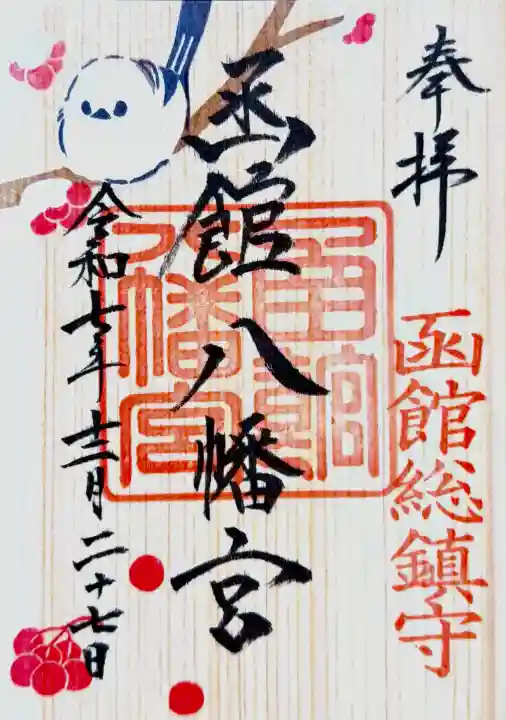 奉拝
函館総鎮守
函館八幡宮
函館八幡宮
令和七年十二月二十七日